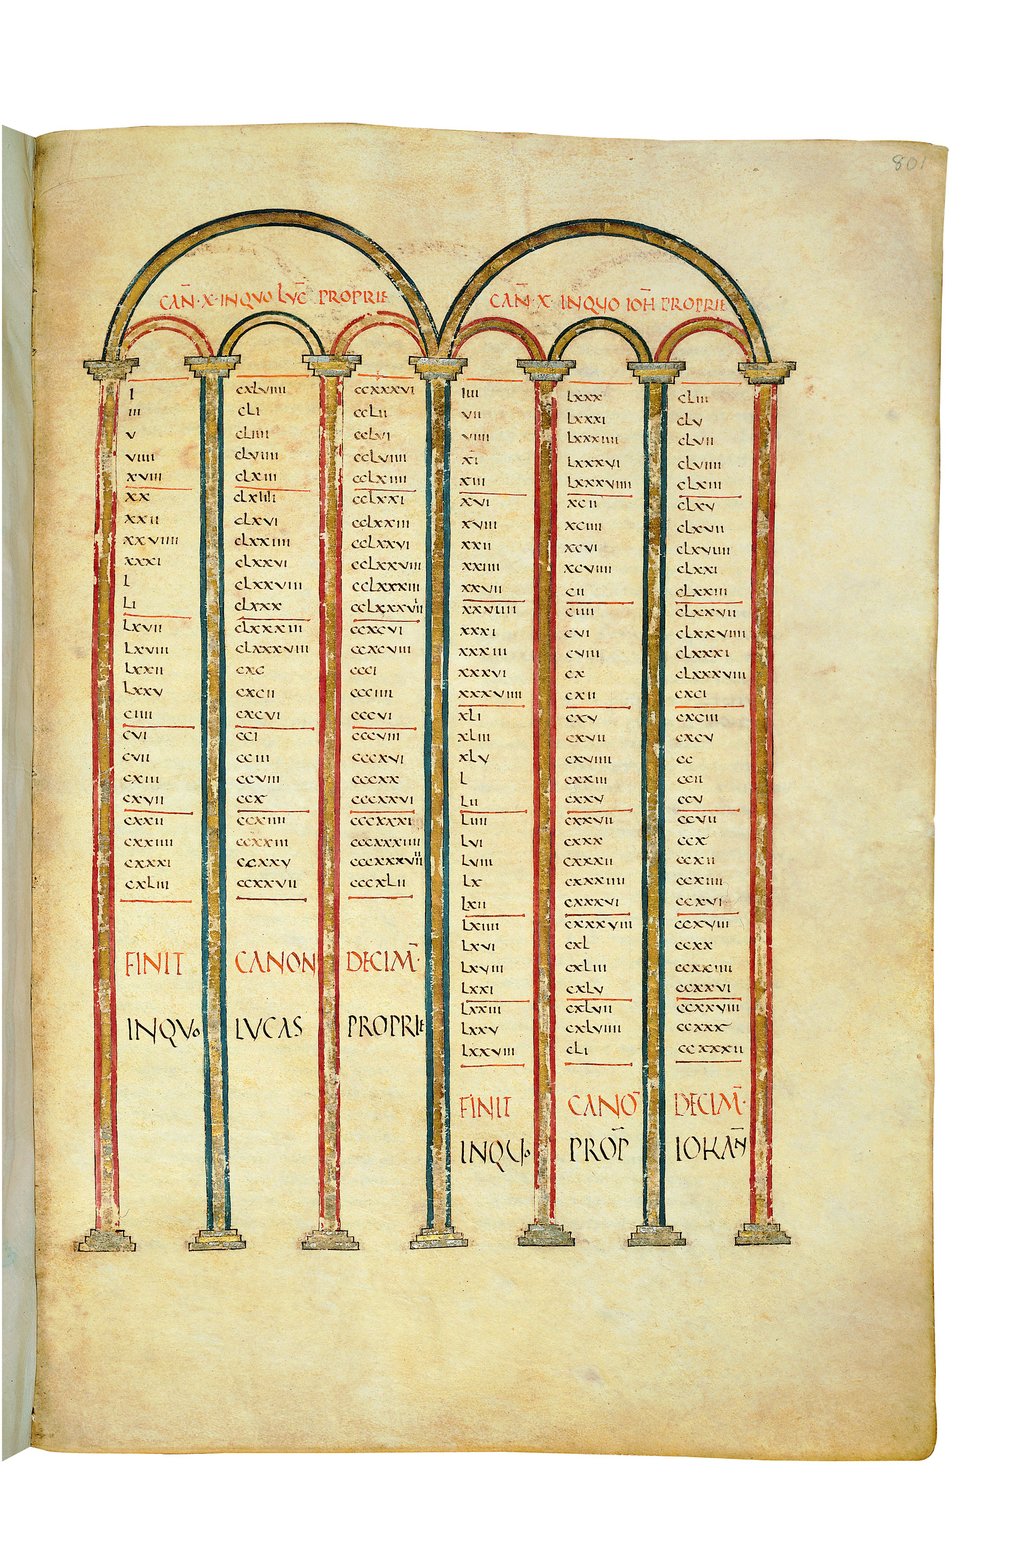 801
CAN̄·X·INQUO LUC̄ PROPRIE
I
III
V
VIIII
XVIII
XX
XXII
XXVIIII
XXXI
L
LI
LXVII
LXVIII
LXXII
LXXV
CIIII
CVI
CVII
CXIII
CXVII
CXXII
CXXIIII
CXXXI
CXLIII
CXLVIIII
CLI
CLIIII
CLVIIII
CLXIII
CLXIIII
CLXVI
CLXXIIII
CLXXVI
CLXXVIII
CLXXX
CLXXXIII
CLXXXVIII
CXC
CXCII
CXCVI
CCI
CCIII
CCVIII
CCX
CCXIIII
CCXXIII
CCXXV
CCXXVII
CCXXXVI
CCLII
CCLVI
CCLVIIII
CCLXIIII
CCLXXI
CCLXXIII
CCLXXVI
CCLXXVIII
CCLXXXIII
CCLXXXVII
CCXCVI
CCXCVIII
CCCI
CCCIIII
CCCVI
CCCVIII
CCCXVI
CCCXX
CCCXXVI
CCCXXXI
CCCXXXIIII
CCCXXXVII
CCCXLII
FINIT CANON DECIM̄·
INQUO LUCAS PROPRIE
CAN̄·X· INQUO IOH̄ PROPRIE
IIII
VII
VIIII
XI
XIII
XVI
XVIII
XXII
XXIIII
XXVII
XXVIIII
XXXI
XXXIII
XXXVI
XXXVIIII
XLI
XLIII
XLV
L
LII
LIIII
LVI
LVIII
LX
LXII
LXIIII
LXVI
LXVIII
LXXI
LXXIII
LXXV
LXXVIII
LXXX
LXXXI
LXXXIIII
LXXXVI
LXXXVIIII
XCII
XCIIII
XCVI
XCVIIII
CII
CIIII
CVI
CVIII
CX
CXII
CXV
CXVII
CXVIIII
CXXIII
CXXV
CXXVII
CXXX
CXXXII
CXXXIIII
CXXXVI
CXXXVIII
CXL
CXLIII
CXLV
CXLVII
CXLVIIII
CLI
CLIII
CLV
CLVII
CLVIIII
CLXIII
CLXV
CLXVII
CLXVIIII
CLXXI
CLXXIII
CLXXVII
CLXXVIIII
CLXXXI
CLXXXVIII
CXCI
CXCIII
CXCV
CC
CCII
CCV
CCVII
CCX
CCXII
CCXIIII
CCXVI
CCXVIII
CCXX
CCXXIIII
CCXXVI
CCXXVIII
CCXXX
CCXXXII
FINIT CANŌ DECIM̄·
INQUO PROP̄ IOHAN̄